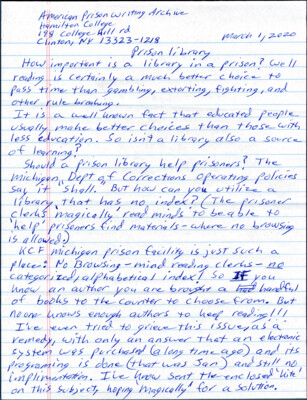 American Prison Writing Archive
Hamilton College
198 College Hill rd
Clinton, NY 13323-1218
March 1, 2020
Prison library
How important is a library in a prison? Well
reading is certainly a much better choice to
pass time than gambling, extorting, fighting, and
other rule breaking.
It is a well known fact that educated people
usually make better choices than those with
less education. So isn't a library also a source
of learning.
Should a prison library help prisoners? The
Michigan Dept of Corrections operating policies
say it "shall." But how can you utilize a
library, that has no index? (The prisoner
clerks "magically" read minds to be able to
"help" prisoners find materials - where no browsing
is allowed.)
KCF Michigan prison facility is just such a
place: No Browsing - mind reading clerks - no
categorized, alphabetical index! So IF you
know an author you are brought a handful
of books to the counter to choose from. But
no one knows enough authors to keep reading!!!
I've even tried to grieve this issue, as a
remedy, with only an answer that an electronic
system was purchased (a long time ago) and its
programing is done (that was Jan) and still no
implimentation. I've now sent the enclosed "kite"
on this subject, hoping "magically" for a solution.